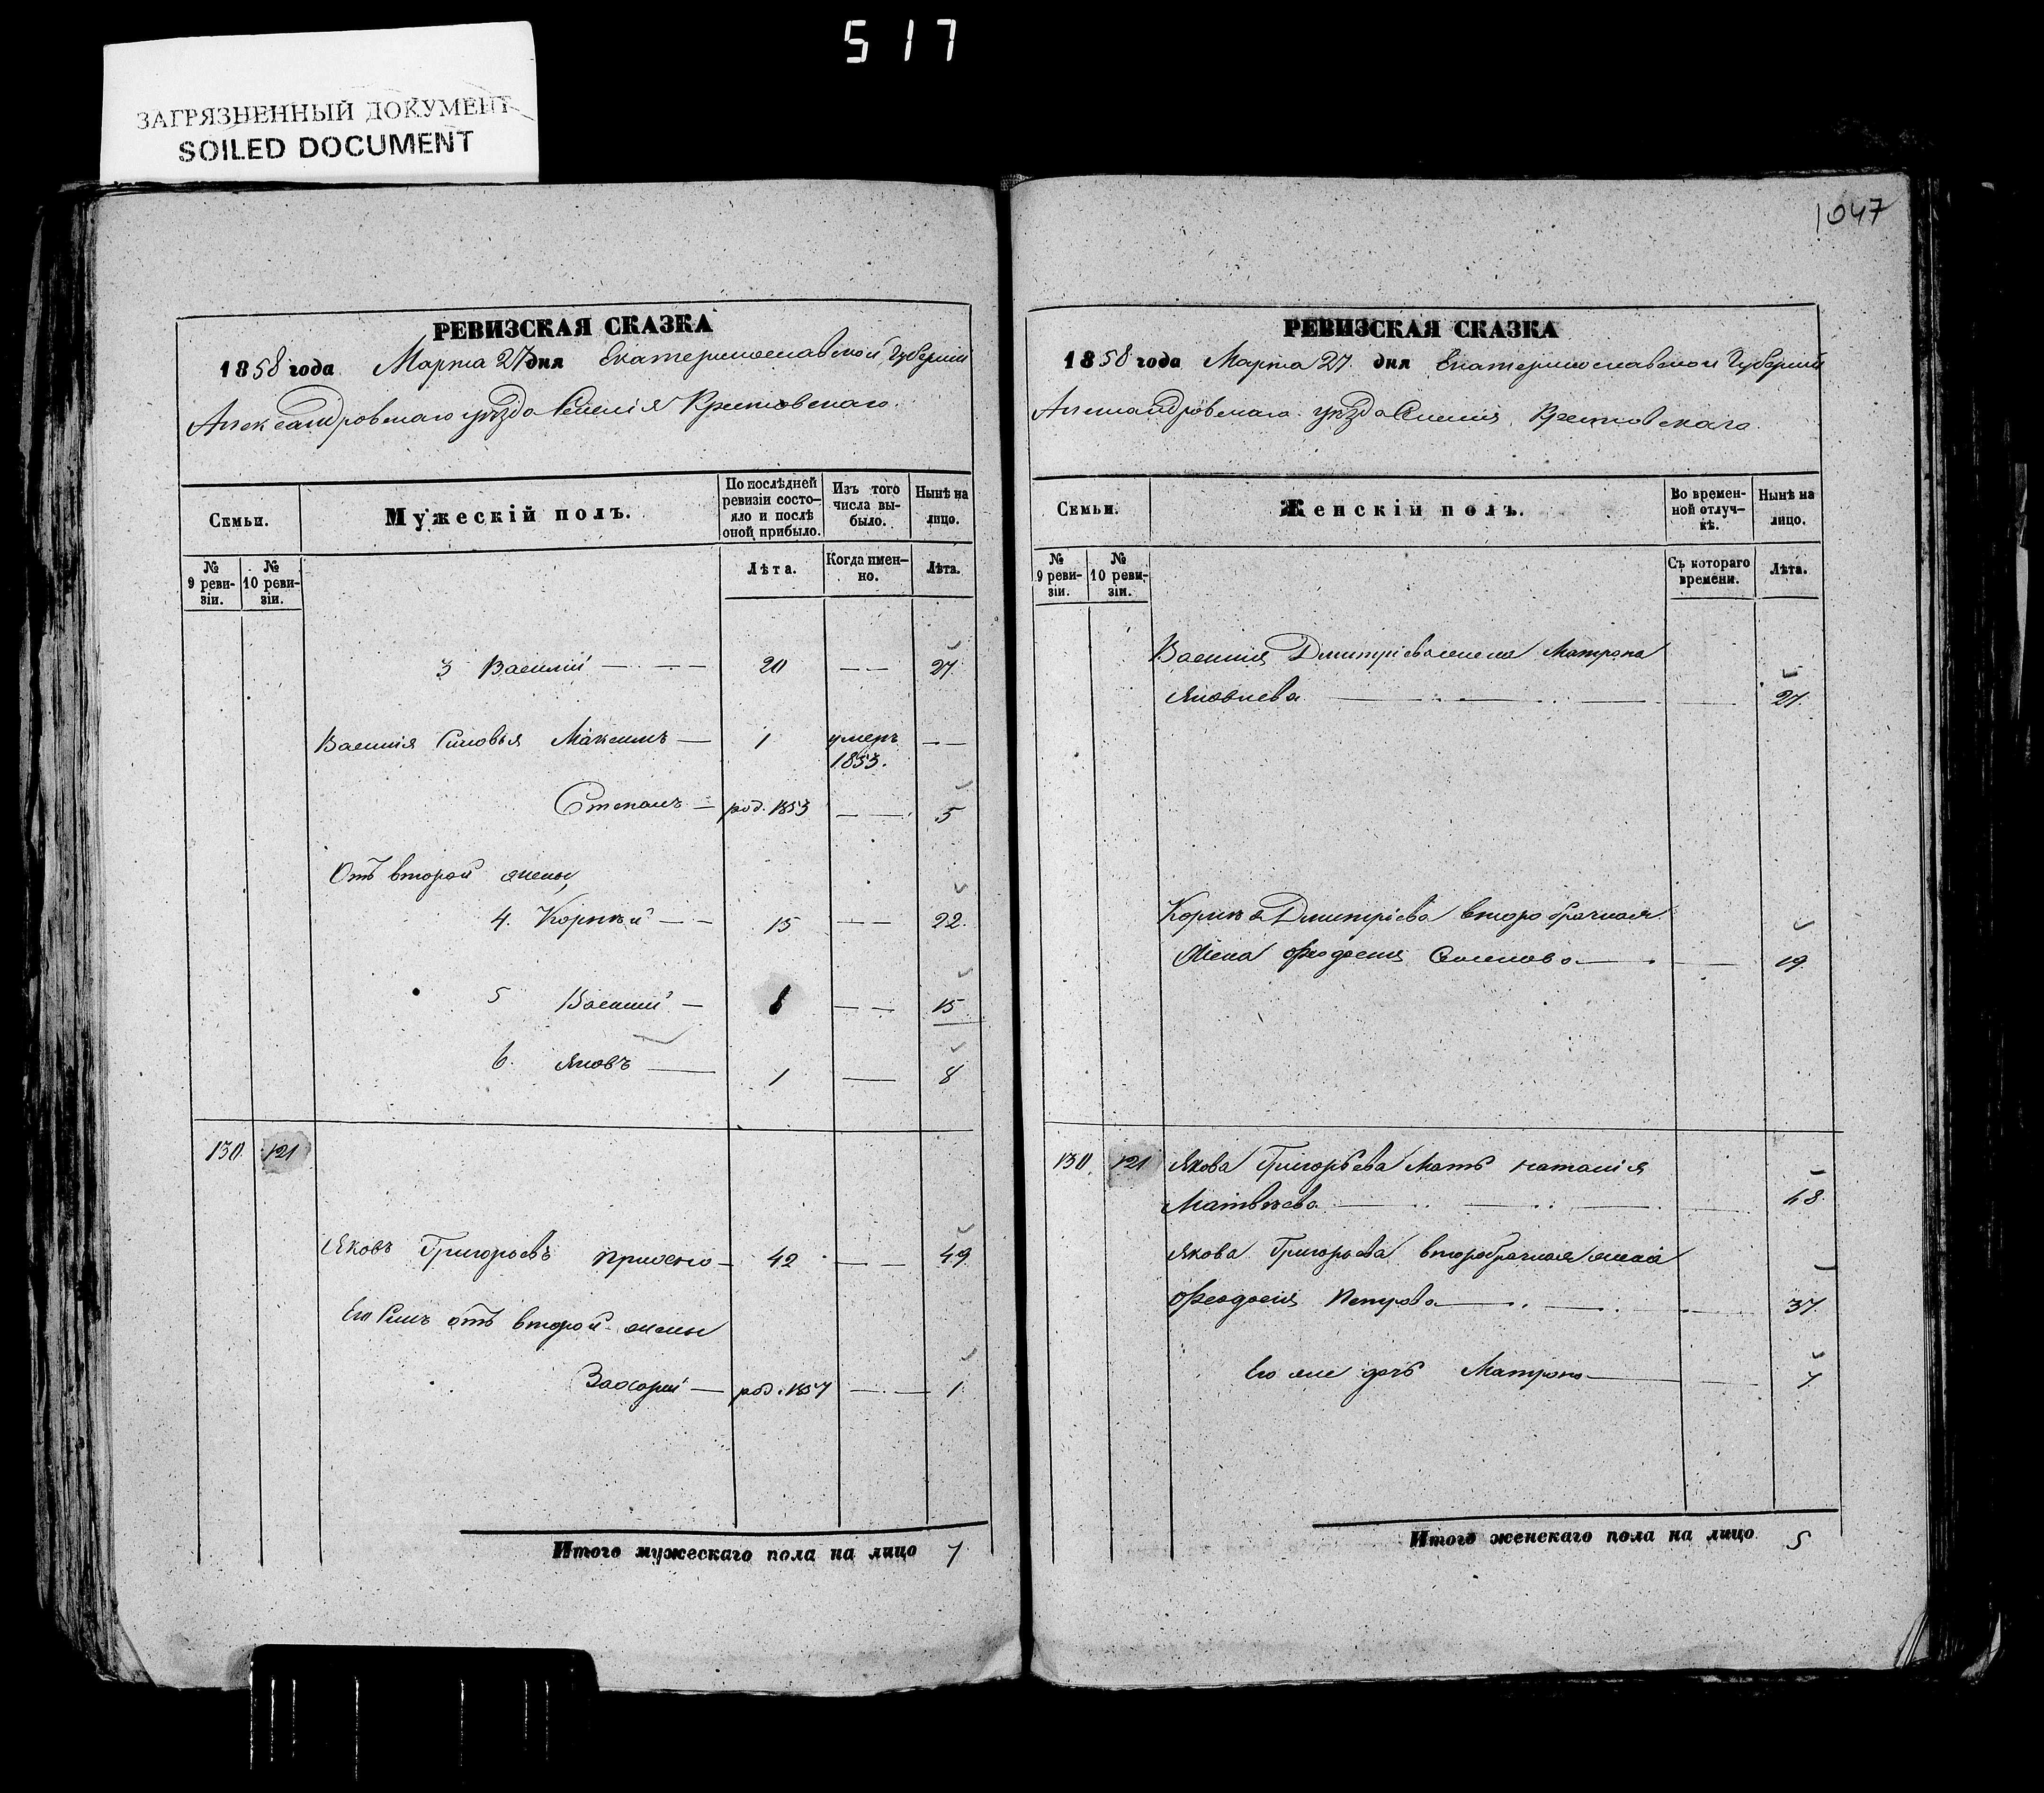 517
ЗАГРЯЗНЕННЫЙ ДОКУМЕНТ
SOILED DOCUMENT
РЕВИЗСКАЯ СКАЗКА
1858 года Марта 27 дня Екатеринославской Губернии
Александровскаго уѣзда Селенія Крестовскаго
Семьи.
Мужескій полъ.
По послѣдней ревизіи состояло и послѣ оной прибыло.
Изъ того числа выбыло.
Нынѣ на лицо.
№ 9 ревизіи.
№ 10 ревизіи.
Лѣта.
Когда именно.
Лѣта.
3 Василій 20 27
Василія Сыновья Максимъ 1 умеръ 1853.
Степанъ род. 1853 5
Отъ второй жены
4. Корнѣй 15 22
5 Василий 8 15
6. Яковъ 1 8
130 121
Яковъ Григорьевъ 42 49
Его Сынъ отъ второй жены
Захарий род. 1857 1
Итого мужескаго пола на лицо 7
1047
РЕВИЗСКАЯ СКАЗКА
1858 года Марта 27 дня Екатеринославской Губерніи
Александровскаго уѣзда Селенія Крестовскаго
Семьи.
Женскій полъ.
Во временной отлучкѣ.
Нынѣ на лицо.
№ 9 ревизіи.
№ 10 ревизіи.
Съ котораго времени.
Лѣта.
Василия Дмитріева жена Матрона
Яковлева 27
Корнѣя Дмитріева второбрачная
Жена Феодосия 19
130 121 Якова Григорьева Мать Наталія
Матвѣева 68
Якова Григорьева второбрачная жена
Феодосія Петрова 37
Его же дочь Матрона 7
Итого женскаго пола на лицо 5